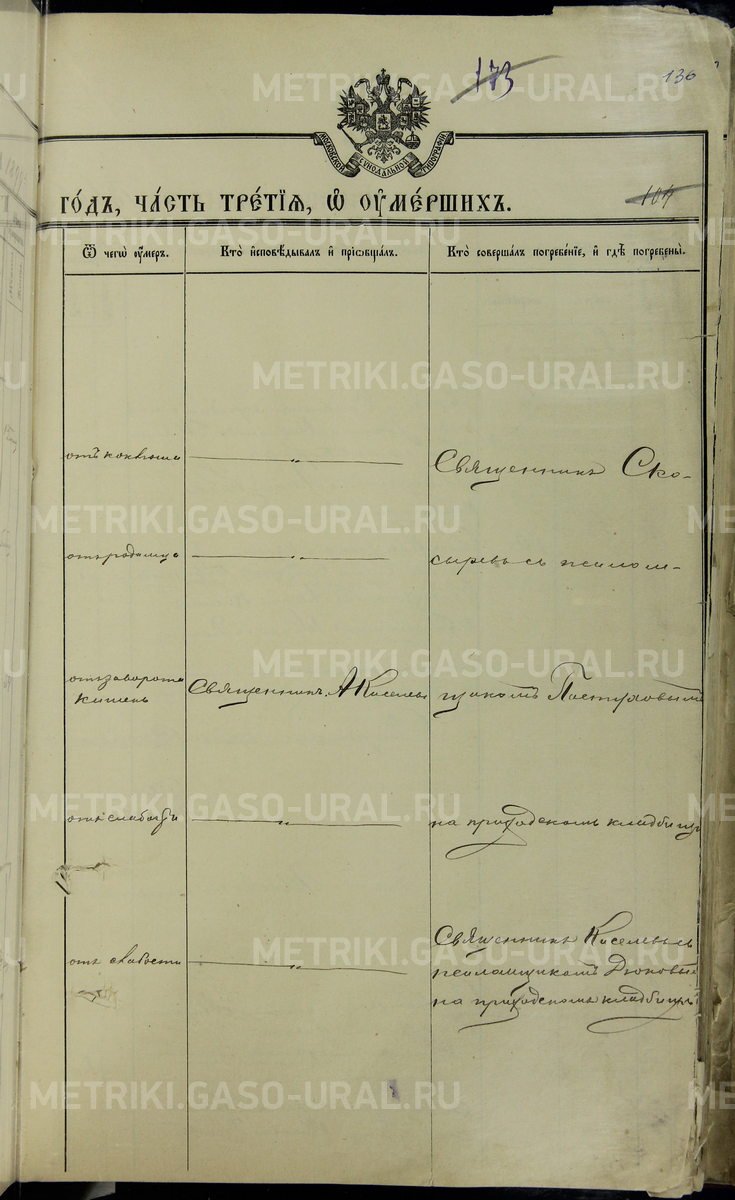 173
130
МОСКОВСКОЙ СѴНОДАЛЬНОЙ ТИПОГРАФІИ
го́дъ, ча́сть тре́тїѧ, ѽ ᲂу҆ме́ршихъ.
104
Ѿ чегѡ̀ ᲂу҆́меръ.
Кто̀ и҆сповѣ́дывалъ и҆ прїѡбща́лъ.
Кто̀ соверша́лъ погребе́нїе, и҆ гдѣ̀ погребены̀.
отъ коклюша
Священникъ Ско-
отъ родимца
сыревъ съ псалом-
отъ заворота
кишекъ
Священникъ А Киселевъ
щикомъ
отъ слабости
на приходскомъ кладбищѣ
отъ слабости
Священникъ Киселевъ съ
псаломщикомъ
на приходскомъ кладбищѣ
METRIKI.GASO-URAL.RU